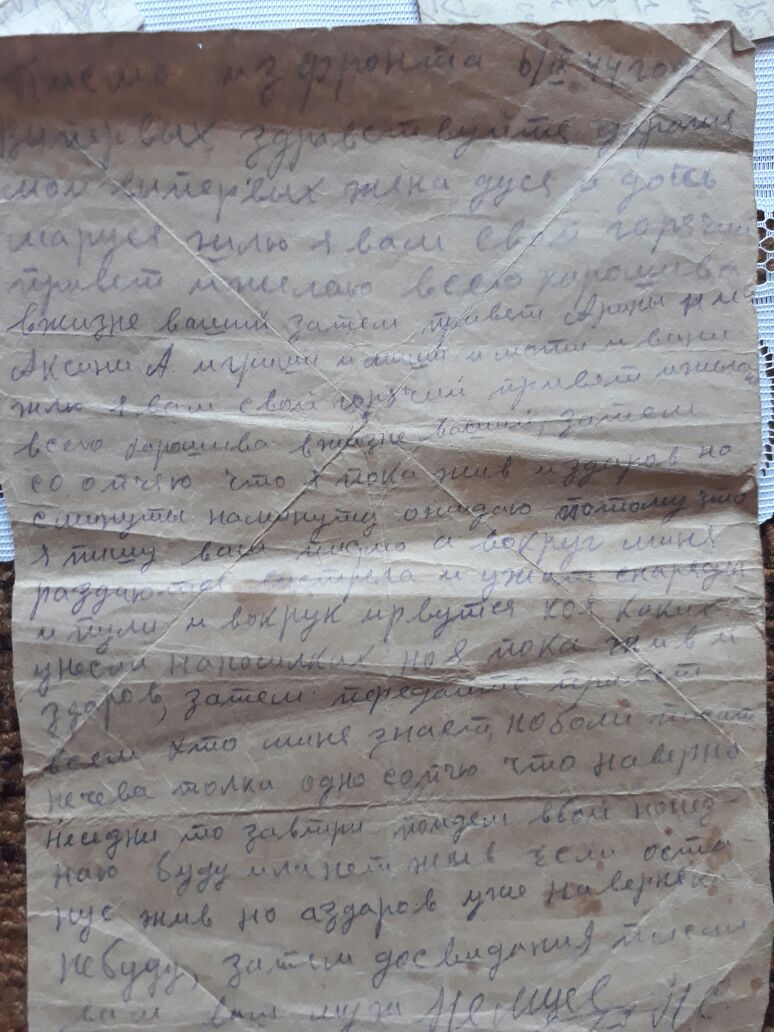 Писмо из фронта 6/II 44 года
Выпервых здравствуйтя дарагия
мои выпервых жена дуся и дочь
маруся шлю я вам свой горячий
привет и желаю всего харошева
вжизне вашей затем привет Арини
Аксини А. и гриши и мити и вани
шлю я вам свой горячий привет и желаю
всего харошева вжизне вашей, затем
сопчяю что я пока жив и здаров но
сминуты наминуту ожидаю потому что
я пишу вам писмо а вокруг миня
раздаются выстрела и ужат снаряды
и пули и вокрук ирвутся кой каких
унесли наносилках ноя пока жив и
здаров, затем передайтя привет
всем хто миня знает, наболи писат
нечева толка одно сопчю что наверно
неседни то завтри пойдем вбой нонез-
наю буду или нет жив если оста-
нус жив но аздаров уже наверняк
небуду, затем досвидания писал
вам ваш муж